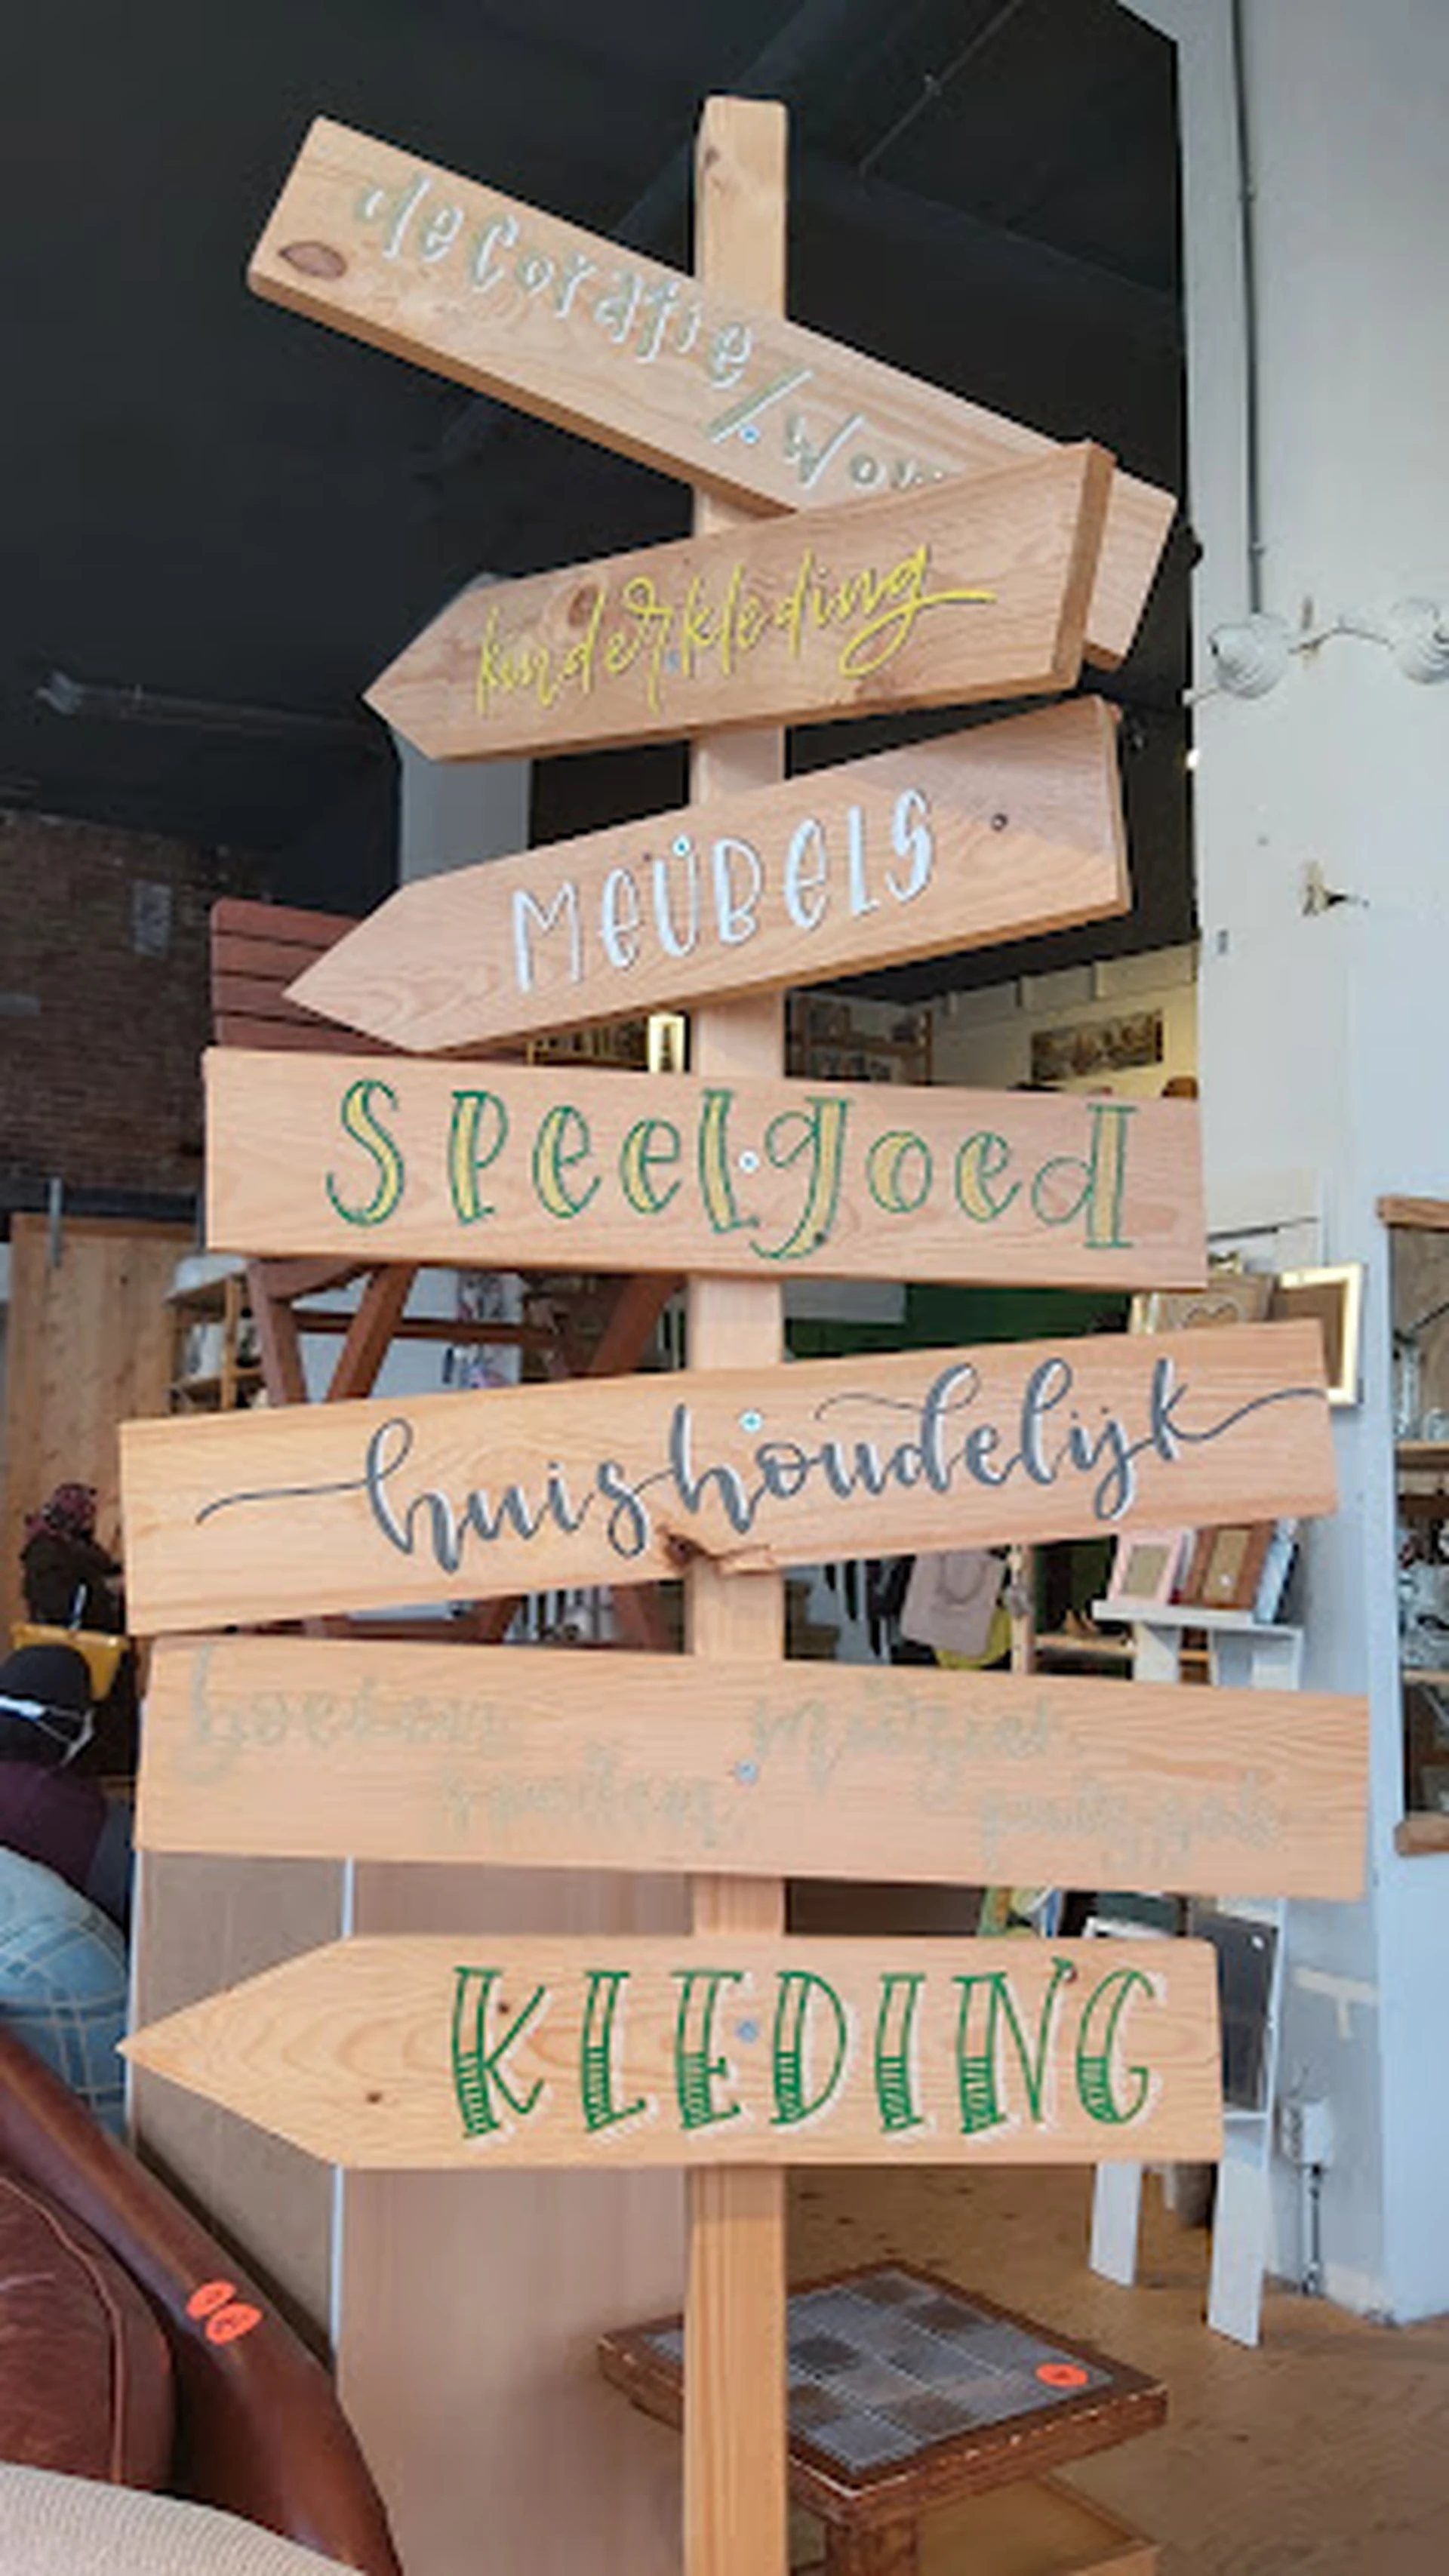 decoratie/wo
kinderkleding
MEUBELS
Speelgoed
huishoudelijk
boeken Muziek
spullen
KLEDING